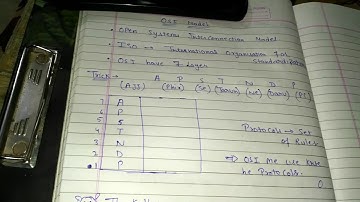 OSI Model
• Open Systems Interconnection Model
• ISO → International Organisation For Standardization
• OSI have 7 Layer
Trick → A P S T N D P
(Ajj) (Phir) (Se) (Ne) (P1)
7 A
6 P
5 S
4 T
3 N
2 D
1 P
Protocols → Set of Rules
→ OSI Me
he Protocols.